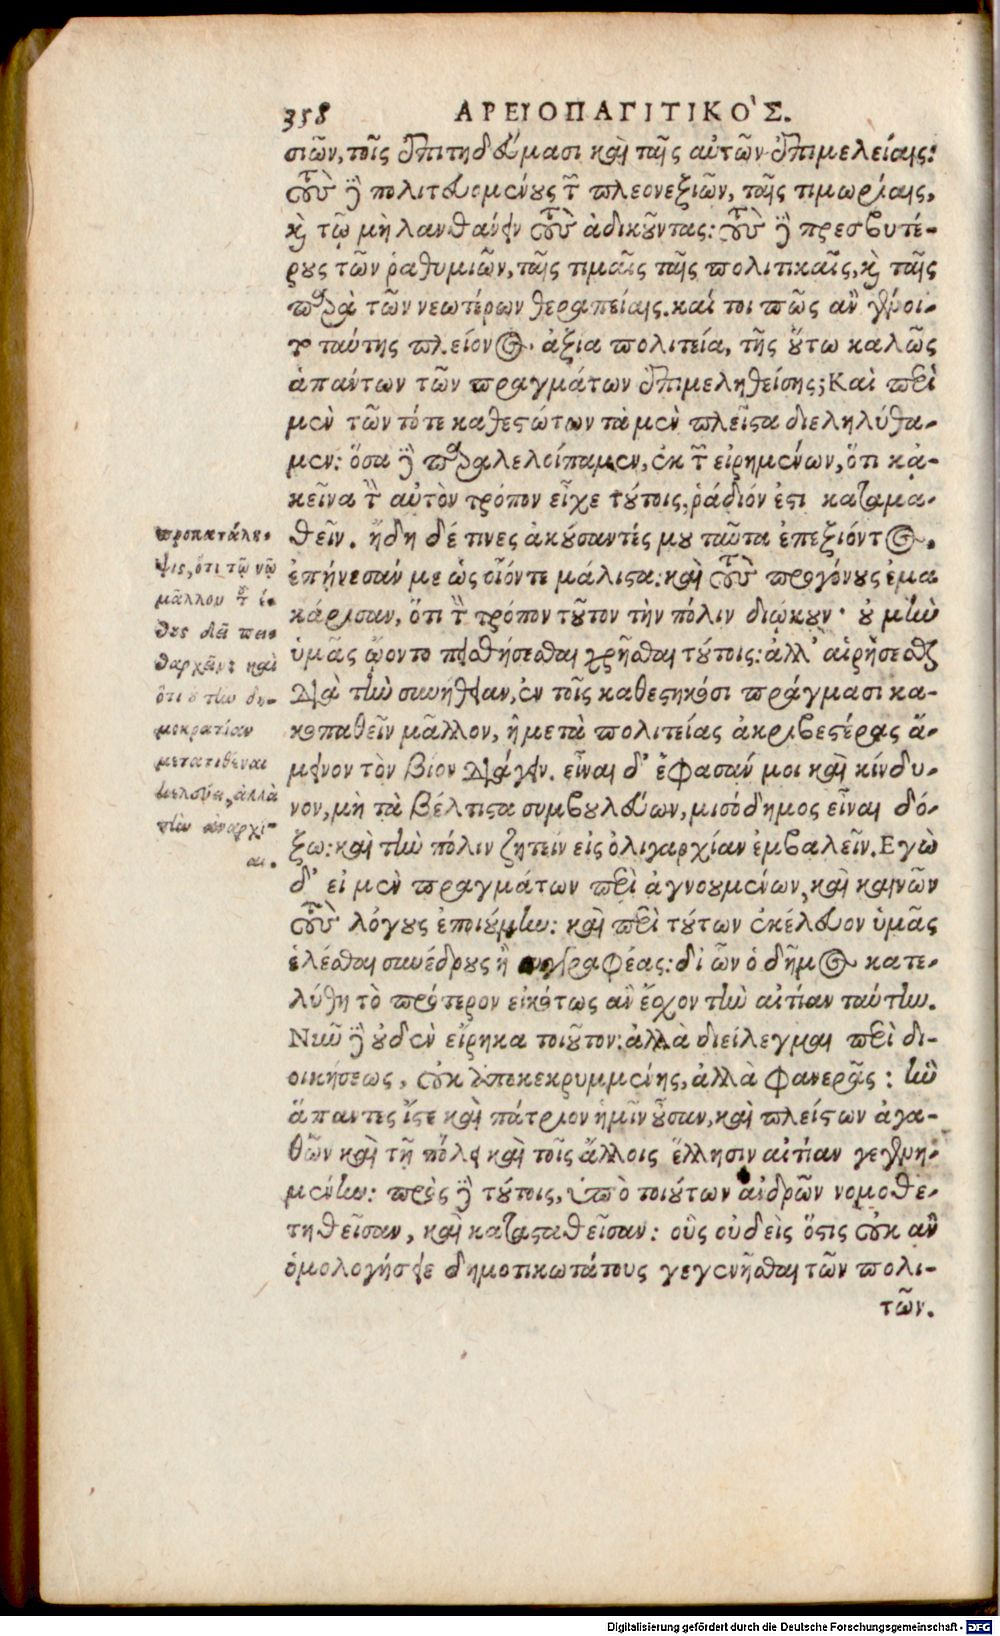 358 ΑΡΕΙΟΠΑΓΙΤΙΚΟ῾Σ.
σιῶν, τοῖς ἐπιτηδεύμασι καὶ ταῖς αὐτῶν ἐπιμελείαις:
τοὺς δὲ πολιτευομένους τῶν πλεονεξιῶν, ταῖς τιμωρίαις,
καὶ τῷ μὴ λανθάνειν τοὺς ἀδικοῦντας: τοὺς δὲ πρεσβυτέ-
ρους τῶν ῥαθυμιῶν, ταῖς τιμαῖς ταῖς πολιτικαῖς, καὶ ταῖς
παρὰ τῶν νεωτέρων θεραπείαις. καί τοι πῶς ἂν γένοι-
το ταύτης πλείονος ἀξία πολιτεία, τῆς οὕτω καλῶς
ἁπάντων τῶν πραγμάτων ἐπιμεληθείσης; Καὶ περὶ
μὲν τῶν τότε καθεστώτων τὰ μὲν πλεῖστα διεληλύθα-
μεν: ὅσα δὲ παραλελοίπαμεν, ἐκ τῶν εἰρημένων, ὅτι κά-
κεῖνα τὸν αὐτὸν τρόπον εἶχε τούτοις, ῥάδιόν ἐστι καταμα-
θεῖν. ἤδη δέ τινες ἀκούσαντές μου ταῦτα ἐπεξιόντος,
ἐπῄνεσάν με ὡς οἷόντε μάλιστα: καὶ τοὺς προγόνους ἐμα
κάρισαν, ὅτι τὸν τρόπον τοῦτον τὴν πόλιν διῴκουν· οὐ μὴν
ὑμᾶς ᾤοντο πεισθήσεσθαι χρῆσθαι τούτοις: ἀλλ' αἱρήσεσθαι
διὰ τὴν συνήθειαν, ἐν τοῖς καθεστηκόσι πράγμασι κα-
κοπαθεῖν μᾶλλον, ἢ μετὰ πολιτείας ἀκριβεστέρας ἄ-
μεινον τὸν βίον διάγειν. εἶναι δ' ἔφασάν μοι καὶ κίνδυ-
νον, μὴ τὰ βέλτιστα συμβουλεύων, μισόδημος εἶναι δό-
ξω: καὶ τὴν πόλιν ζητεῖν εἰς ὀλιγαρχίαν ἐμβαλεῖν. Εγὼ
δ' εἰ μὲν πραγμάτων περὶ ἀγνοουμένων, καὶ καινῶν
τοὺς λόγους ἐποιούμην: καὶ περὶ τούτων ἐκέλευον ὑμᾶς
ἑλέσθαι συνέδρους ἢ συγγραφέας: δι ὧν ὁ δῆμος κατε-
λύθη τὸ πρότερον εἰκότως ἂν ἔσχον τὴν αἰτίαν ταύτην.
Νῦν δὲ οὐδὲν εἴρηκα τοιοῦτον: ἀλλὰ διείλεγμαι περὶ δι-
οικήσεως, οὐκ ἀποκεκρυμμένης, ἀλλὰ φανερᾶς: ἣν
ἅπαντες ἴστε καὶ πάτριον ἡμῖν οὖσαν, καὶ πλείστων ἀγα-
θῶν καὶ τῇ πόλει καὶ τοῖς ἄλλοις ἕλλησιν αἰτίαν γεγενη-
μένην: πρὸς δὲ τούτοις, ὑπὸ τοιούτων ἀνδρῶν νομοθε-
τηθεῖσαν, καὶ κατασταθεῖσαν: οὓς οὐδεὶς ὅστις οὐκ ἂν
ὁμολογήσειε δημοτικωτάτους γεγενῆσθαι τῶν πολι-
τῶν.
προκατάλη-
ψις, ὅτι τῷ νῷ
μᾶλλον ἢ τῷ ἔ-
θους δεῖ πει-
θαρχεῖν: καὶ
ὅτι οὐ τὴν δη-
μοκρατίαν
μετατιθέναι
βελεύει, ἀλλὰ
τὴν ἀναρχί-
αν.
Digitalisierung gefördert durch die Deutsche Forschungsgemeinschaft - DFG